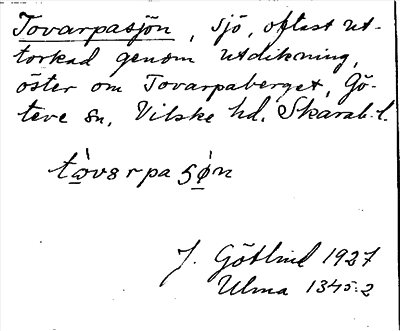 Tovarpasjön, sjö, oftast ut-
torkad genom utdikning,
öster om Tovarpaberget, Gö-
teve sn, Vilske hd, Skarab. l.
tòvərpa sø̀n
J. Götlind 1927
Ulma 1345:2